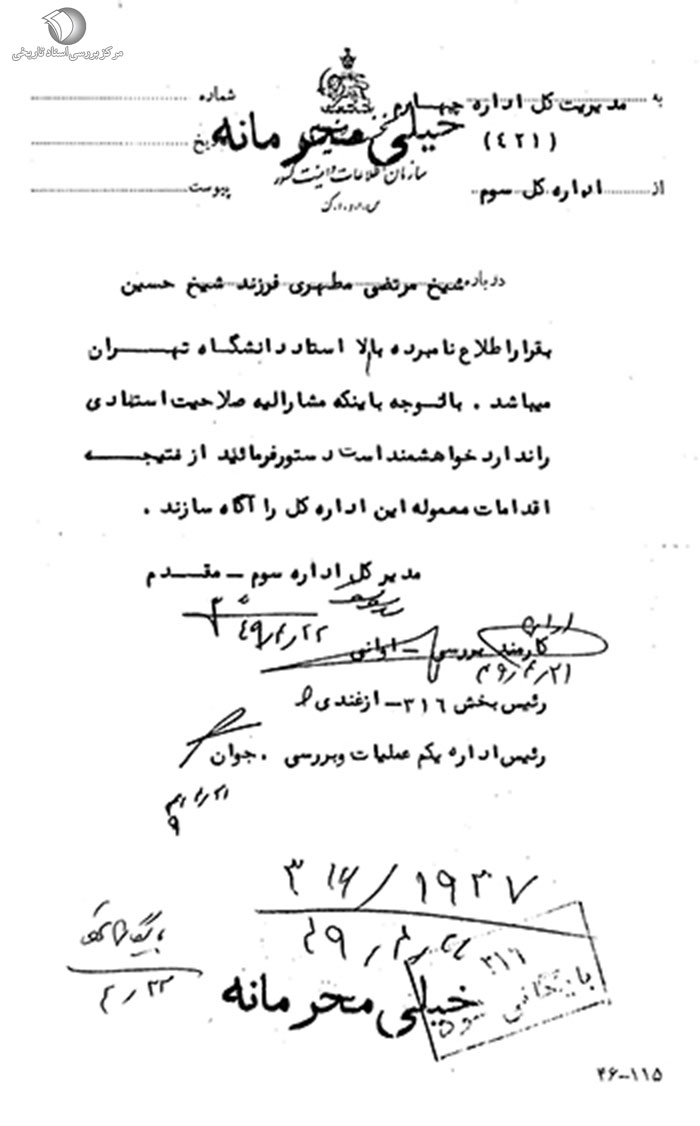 مرکز بررسی اسناد تاریخی
به مدیریت کل اداره چهارم
(۴۲۱)
از اداره کل سوم
خیلی محرمانه
نخست وزیری
سازمان اطلاعات و امنیت کشور
س.ا.و.ا.ک
شماره
تاریخ
پیوست
درباره شیخ مرتضی مطهری فرزند شیخ حسین
بقرار اطلاع نامبرده بالا استاد دانشگاه تهران
میباشد . با توجه باینکه مشارالیه صلاحیت استادی
را ندارد خواهشمند است دستور فرمائید از نتیجه
اقدامات معموله این اداره کل را آگاه سازند .
مدیر کل اداره سوم - مقدم
۴۹/۴/۲۲
کارمند بررسی - اوانی
۴۹/۴/۲۱
رئیس بخش ۳۱۶ - ازغندی
رئیس اداره یکم عملیات و بررسی . جوان
۳۱۶/۱۹۳۷
۴۹/۴/۲۲
بایگانی شود
۴/۲۳
۳۱۶
بایگانی شود
خیلی محرمانه
۴۶-۱۱۵